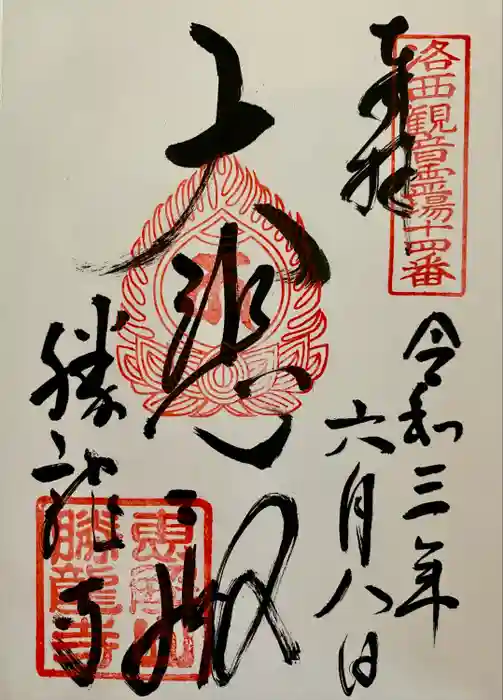 奉拝
洛西観音霊場十四番
令和三年
六月八日
大悲殿
勝龍寺
恵解山
勝龍寺